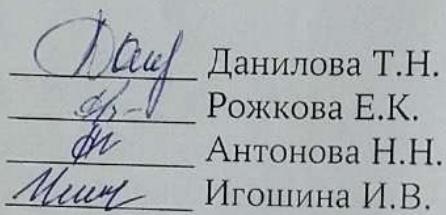 Данилова Т.Н.
Рожкова Е.К.
Антонова Н.Н.
Игошина И.В.